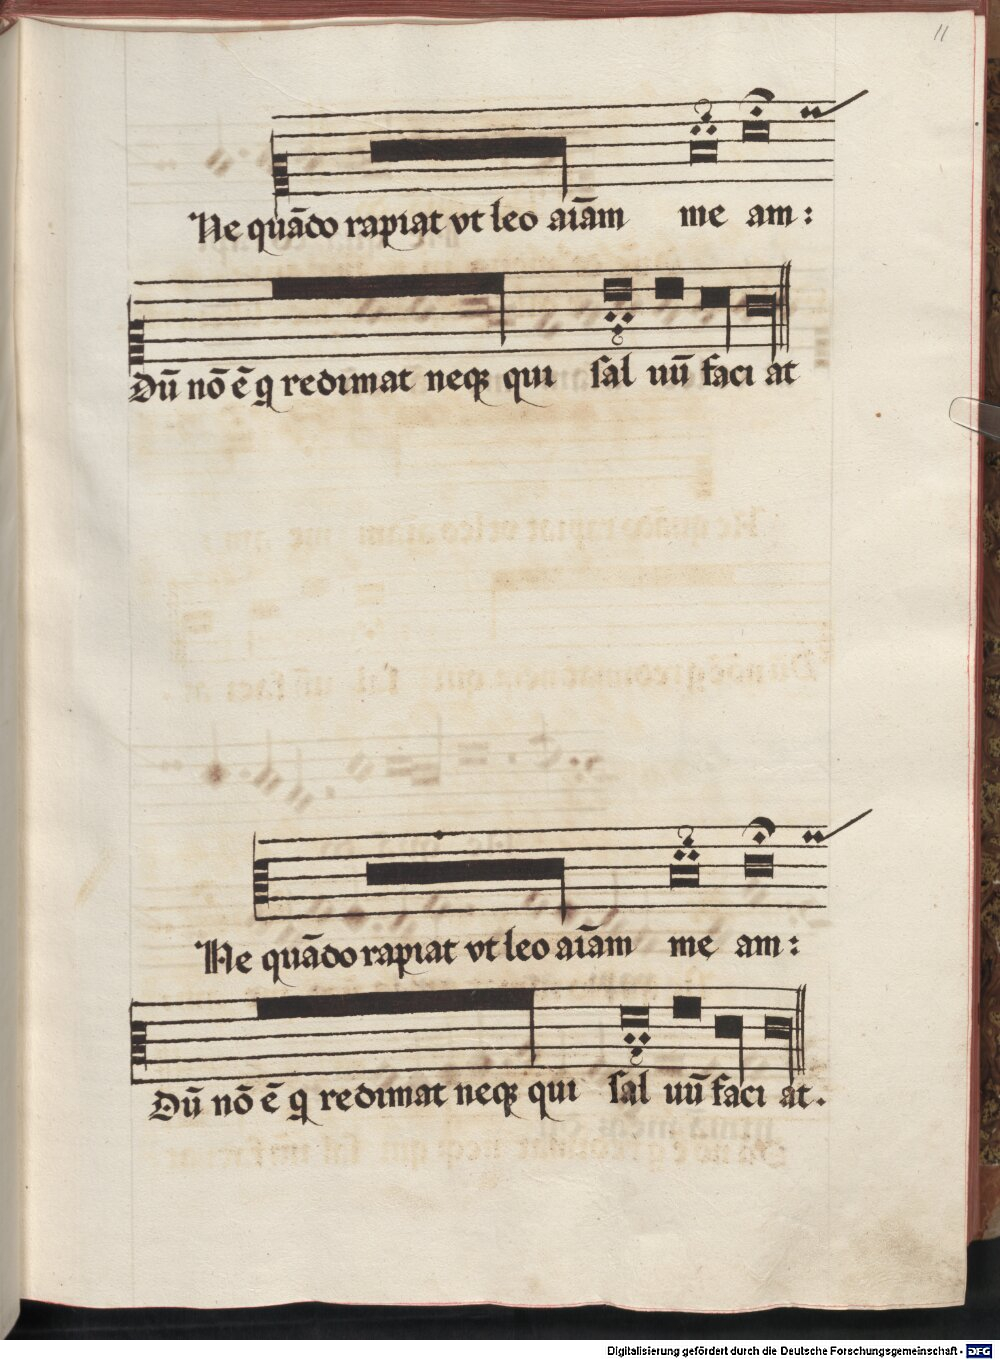 11
Ne quādo rapiat vt leo aīam me am:
Dū nō ē q redimat neqꝫ qui sal uū faci at
Ne quādo rapiat vt leo aīam me am:
Dū nō ē q redimat neqꝫ qui sal uū faci at.
Digitalisierung gefördert durch die Deutsche Forschungsgemeinschaft - DFG